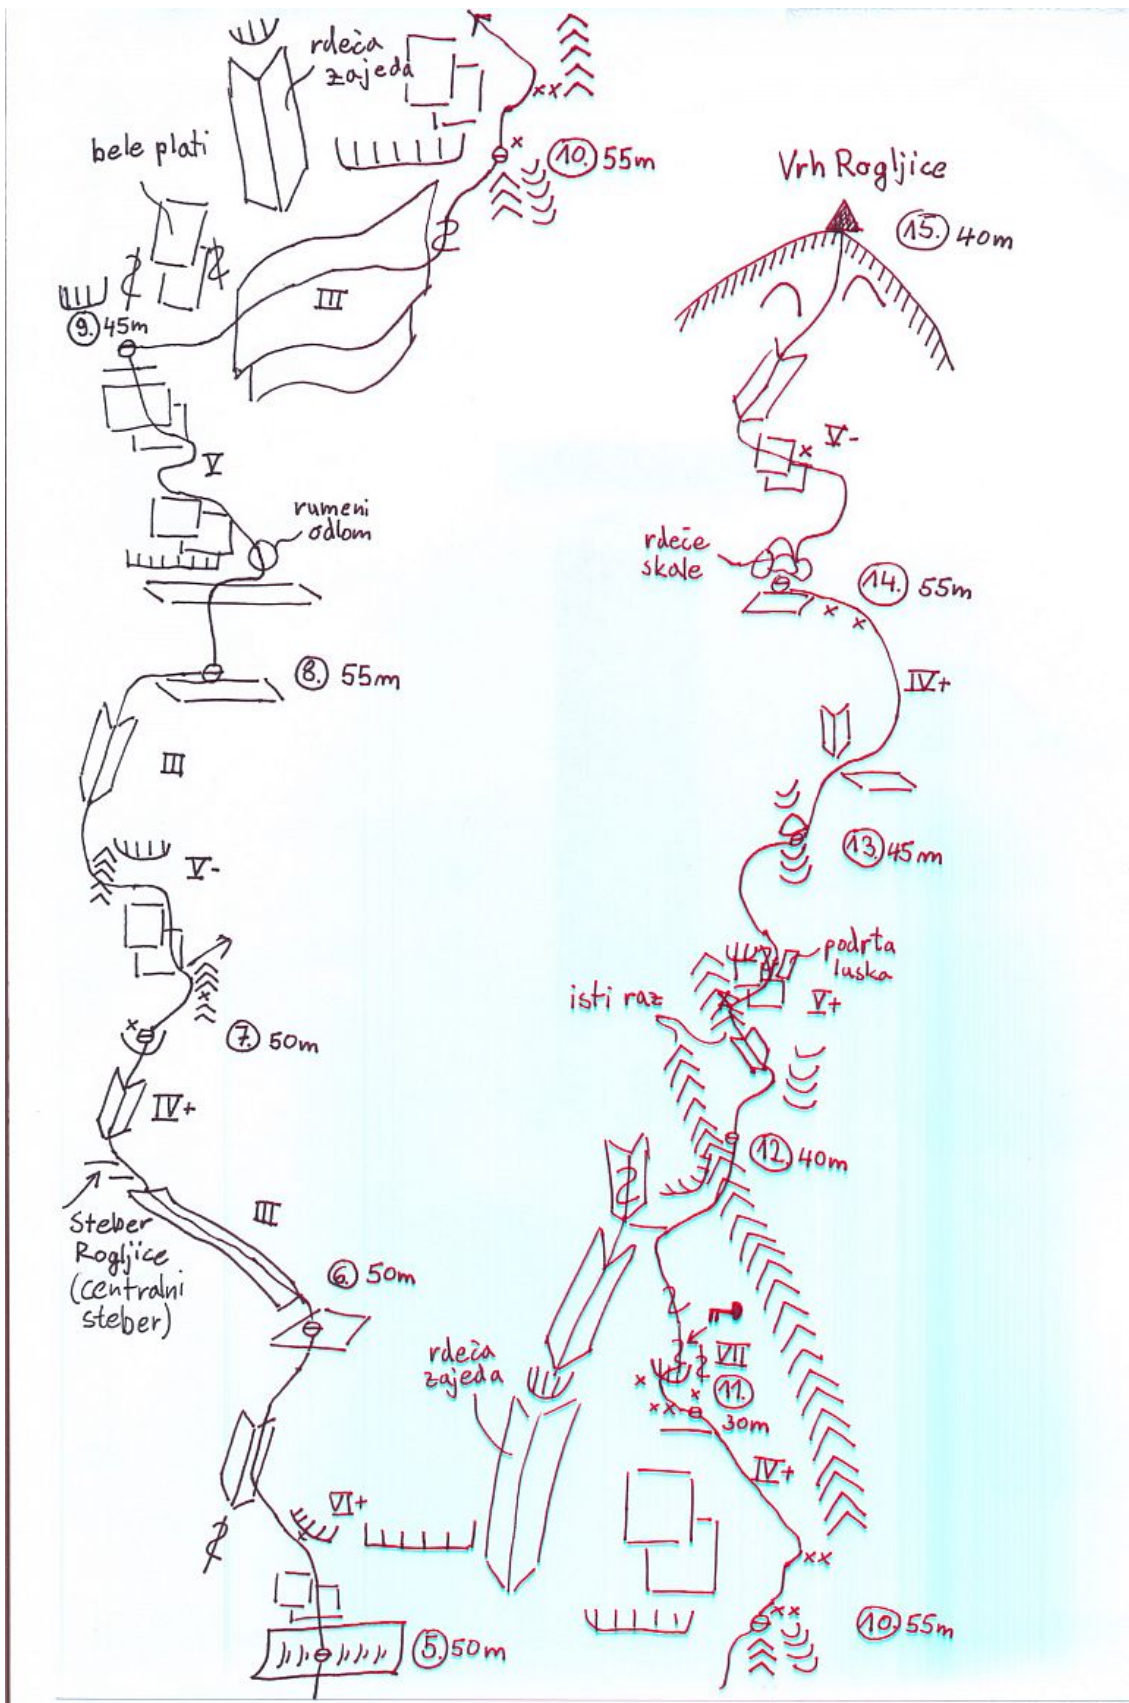 rdeča
zajeda
bele plati
10. 55m
III
9. 45m
V
rumeni
odlom
8. 55m
III
V-
7. 50m
IV+
Steber
Rogljice
(centralni
steber)
III
6. 50m
VI+
5. 50m
Vrh Rogljice
15. 40m
V-
rdeče
skale
14. 55m
IV+
13. 45m
podrta
luska
V+
isti raz
12. 40m
rdeča
zajeda
VII
11.
30m
IV+
10. 55m